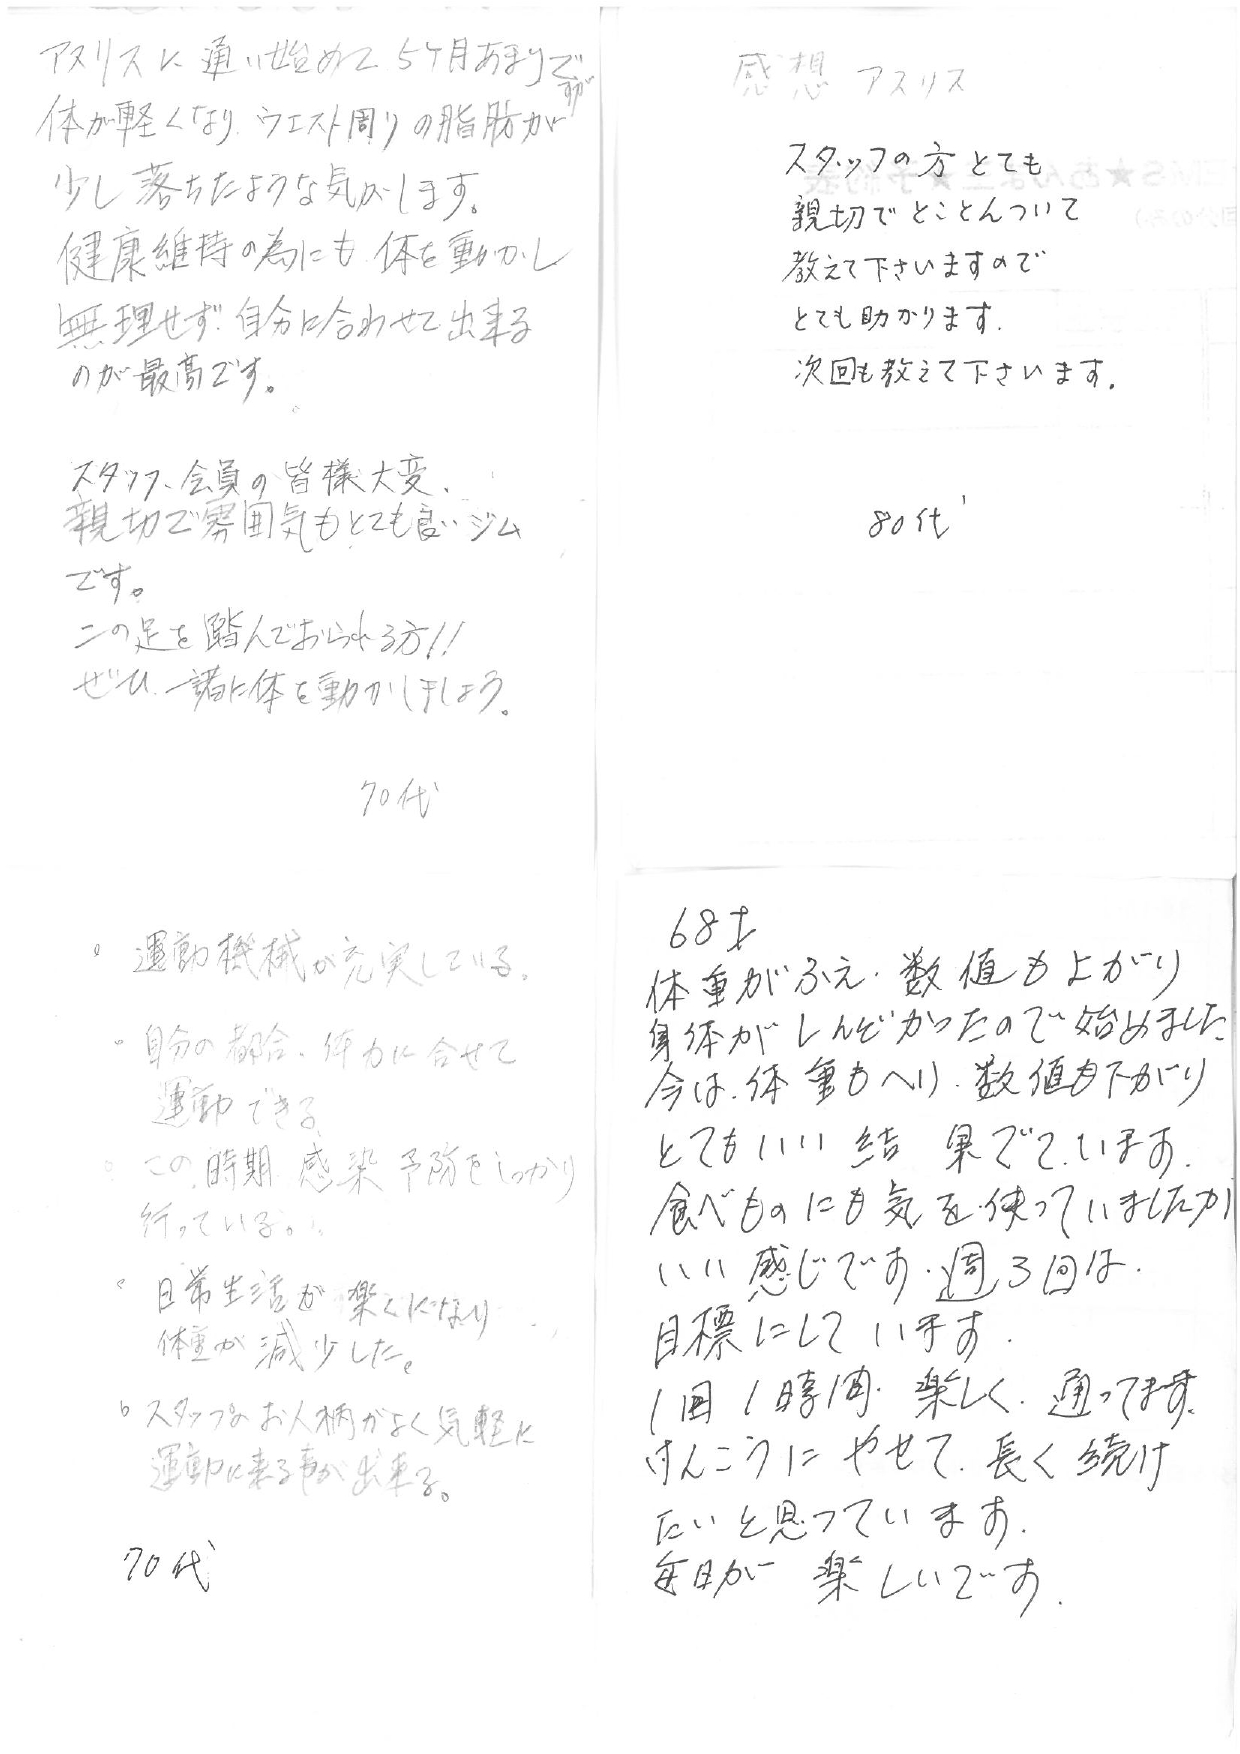 アスリスに通い始めて5ケ月あまりですが
体が軽くなり、ウエスト周りの脂肪が
少し落ちたような気がします。
健康維持の為にも、体を動かし
無理せず、自分に合わせて出来る
のが最高です。
スタッフ、会員の皆様大変、
親切で雰囲気もとても良いジム
です。
二の足を踏んでおられる方!!
ぜひ、一緒に体を動かしましょう。
70代
感想 アスリス
スタッフの方とても
親切でとことんついて
教えて下さいますので
とても助かります.
次回も教えて下さいます.
80代
運動機械が充実している。
自分の都合、体力に合せて
運動できる
この時期 感染予防をしっかり
行っている。
日常生活が楽になり
体重が減少した。
スタッフのお人柄がよく気軽に
運動に来る事が出来る。
70代
68才
体重がふえ、数値も上がり
身体がしんどかったので始めました
今は、体重もへり、数値も下がり
とてもいい結果でています.
食べものにも気を使っていましたが
いい感じです.週3回は.
目標にしています.
1回1時間.楽しく.通ってます.
けんこうにやせて.長く続け
たいと思っています.
毎日が楽しいです.